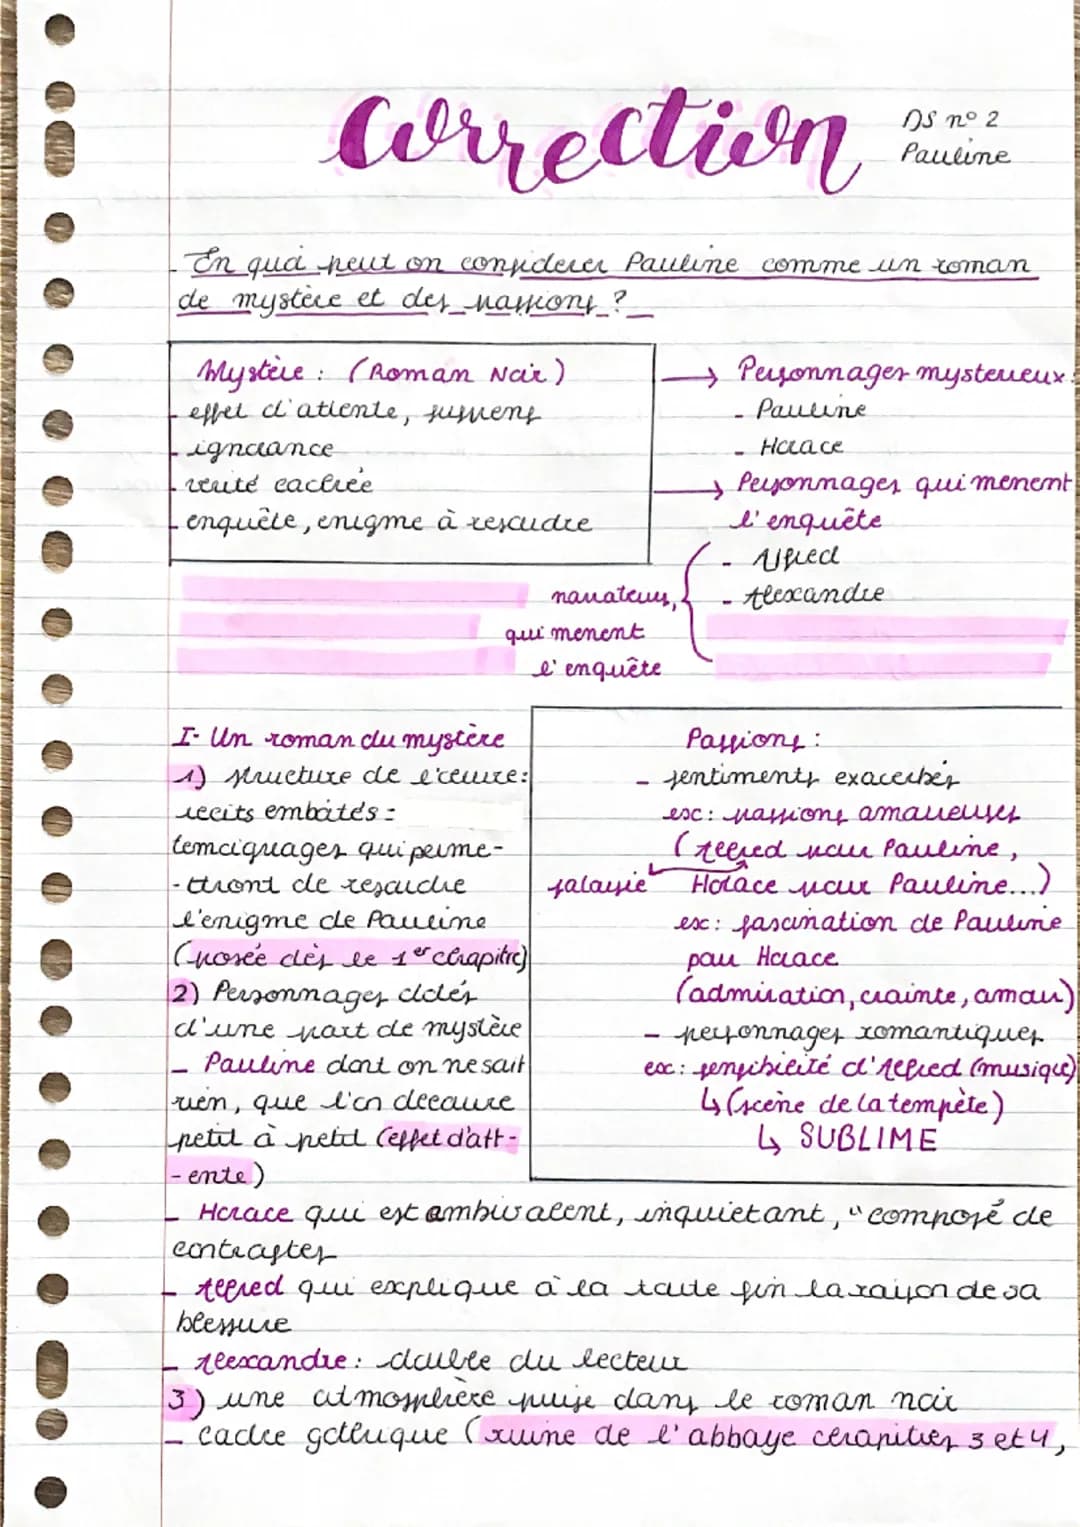 Correction
DS n° 2
Pauline
En quoi peut on considerer Pauline comme un roman
de mystère et des passions ?
Mystère : (Roman Noir)
effet d'attente, suspens
ignorance
- verité cachée
- enquête, enigme à resoudre
→ Personnages mysterieux :
- Pauline
- Horace
→ Personnages qui menent
l'enquête
- Alfred
- Alexandre
narrateurs,
qui menent
l'enquête
I- Un roman du mystère
1) structure de l'oeuvre :
recits emboités =
temoiquages qui perme-
-ttront de resoudre
l'enigme de Pauline
(posée dès le 1er chapitre)
2) Personnages dotés
d'une part de mystère
- Pauline dont on ne sait
rien, que l'on decouvre
petit à petit (effet d'att-
-ente)
Passions :
- sentiments exacerbés
ex : passions amoureuses
(Alfred pour Pauline,
jalousie Horace pour Pauline...)
ex : fascination de Pauline
pour Horace
(admiration, crainte, amour)
- personnages romantiques
ex : sensibilité d'Alfred (musique)
↳ (scène de la tempête)
↳ SUBLIME
- Horace qui est ambivalent, inquietant, "composé de
contrastes
- Alfred qui explique à la toute fin la raison de sa
blessure
- Alexandre : double du lecteur
3) une atmosphère puise dans le roman noir
- cadre gothique (ruine de l'abbaye chapitres 3 et 4,